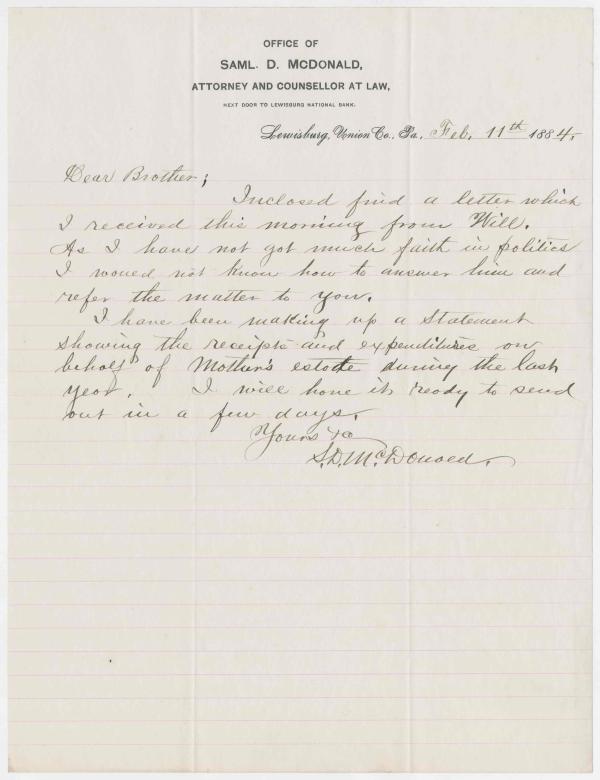 OFFICE OF
SAML. D. McDONALD,
ATTORNEY AND COUNSELLOR AT LAW,
NEXT DOOR TO LEWISBURG NATIONAL BANK.
Lewisburg, Union Co., Pa., Feb. 11th 1884.
Dear Brother;
Inclosed find a letter which
I received this morning from Will.
As I have not got much faith in politics
I would not know how to answer him and
refer the matter to you.
I have been making up a statement
showing the receipts and expenditures on
behalf of Mother's estate during the last
year. I will have it ready to send
out in a few days.
Yours &c
S.D. McDonald.